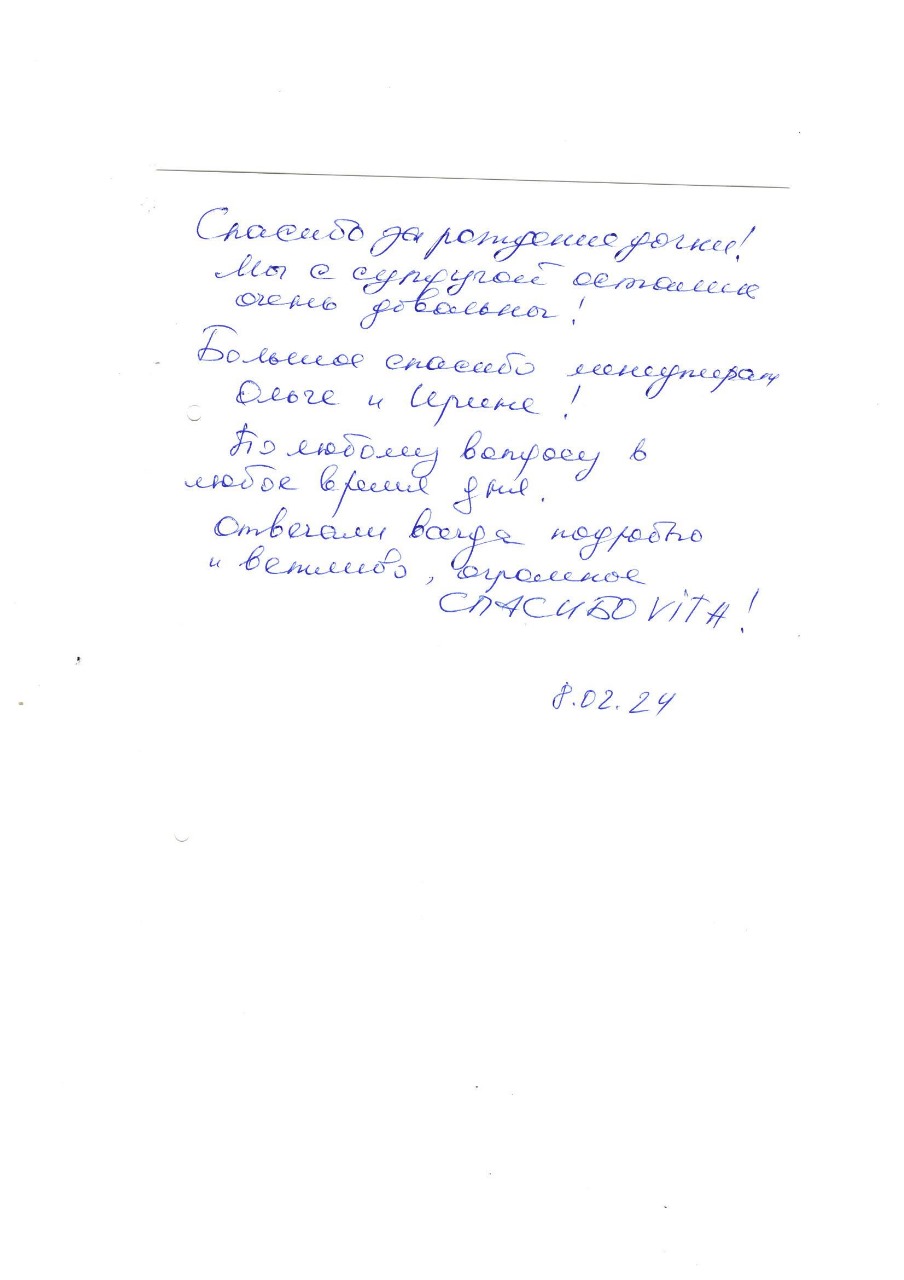 Спасибо за рождение дочки!
Мы с супругой остались
очень довольны!
Большое спасибо менеджерам
Ольге и Ирине!
По любому вопросу в
любое время дня.
Отвечали всегда подробно
и вежливо, огромное
СПАСИБО ViTA!
8.02.24